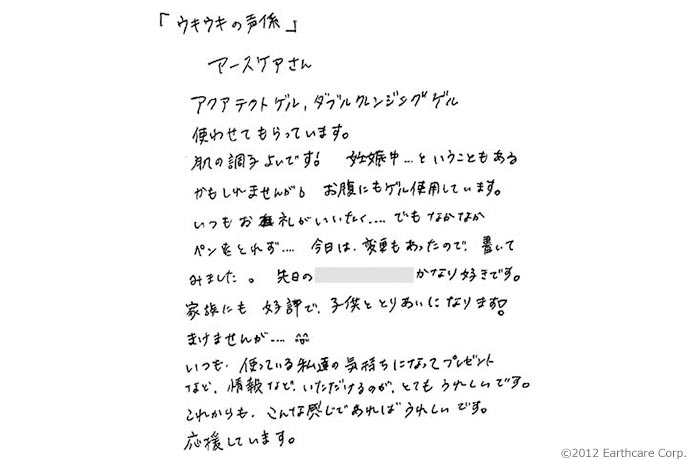 「ウキウキの声係」
アースケアさん
アクアテクトゲル、ダブルクレンジングゲル
使わせてもらっています。
肌の調子よいです! 妊娠中...ということもある
かもしれませんが、お腹にもゲル使用しています。
いつもお礼がいいたく....でもなかなか
ペンをとれず.... 今日は、変更もあったので、書いて
みました。 先日の かなり好きです。
家族にも 好評で、子供ととりあいになります!
まけませんが....
いつも、使っている私達の気持ちになってプレゼント
など、情報など、いただけるのが、とてもうれしいです。
これからも、こんな感じであればうれしいです。
応援しています。
©2012 Earthcare Corp.